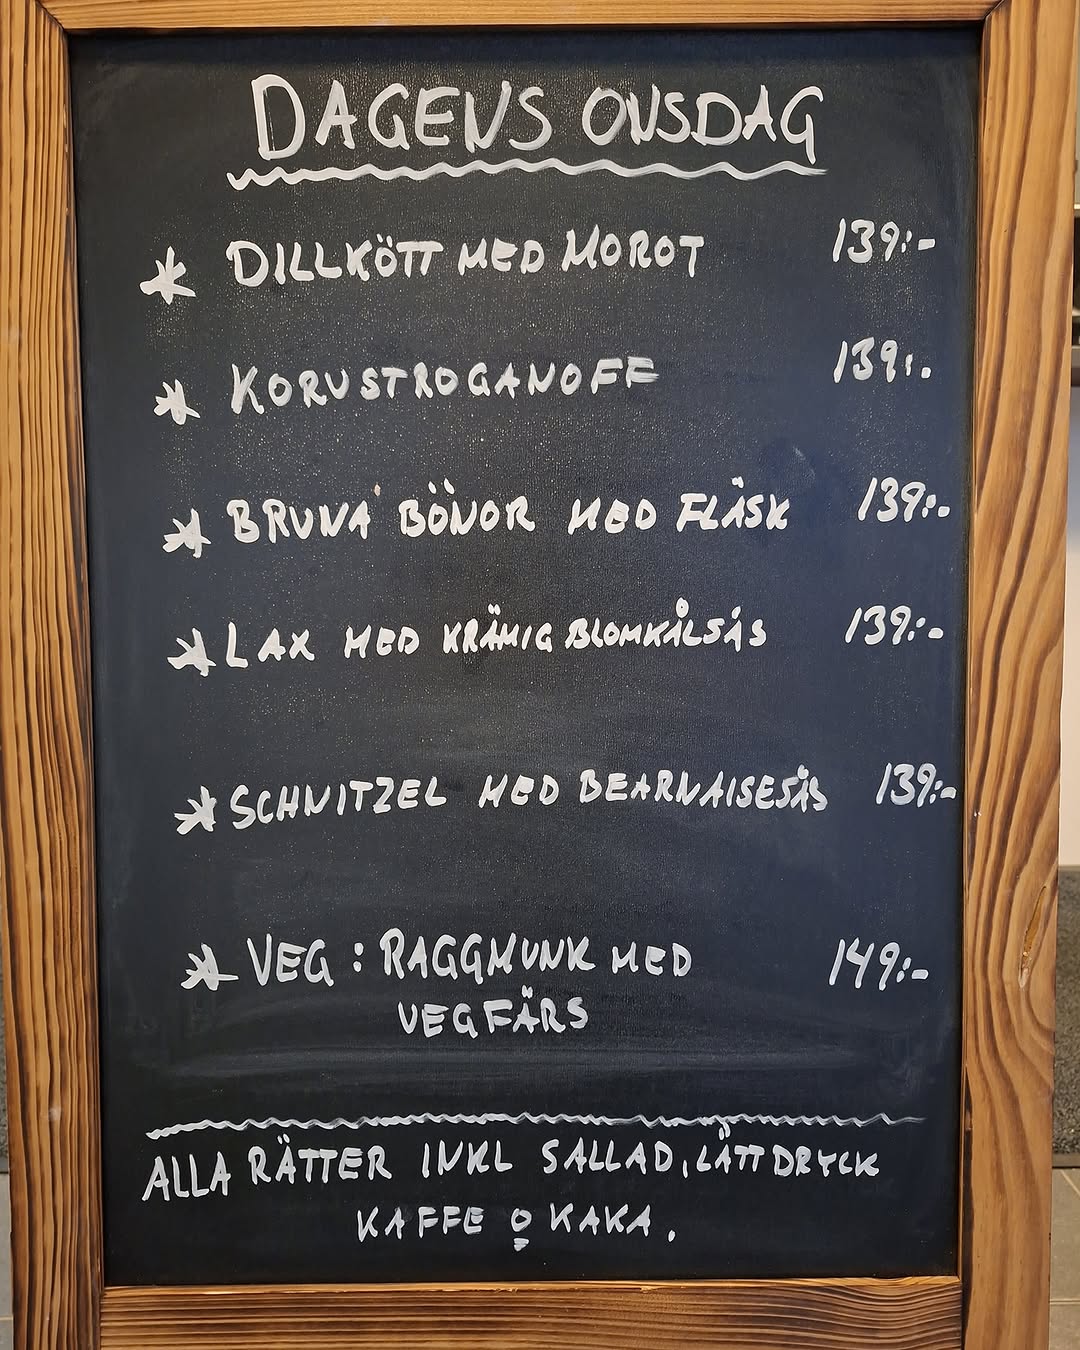 DAGENS ONSDAG
* DILLKÖTT MED MOROT 139:-
* KORVSTROGANOFF 139:-
* BRUNA BÖNOR MED FLÄSK 139:-
* LAX MED KRÄMIG BLOMKÅLSÅS 139:-
* SCHNITZEL MED BEARNAISESÅS 139:-
* VEG : RAGGMUNK MED 149:-
VEGFÄRS
ALLA RÄTTER INKL SALLAD, LÄTTDRYCK
KAFFE o KAKA.